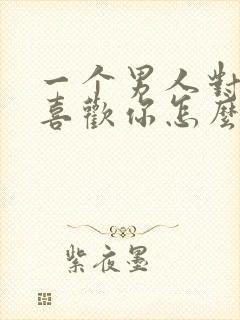 一个男人對
喜歡你怎麼
紫夜墨